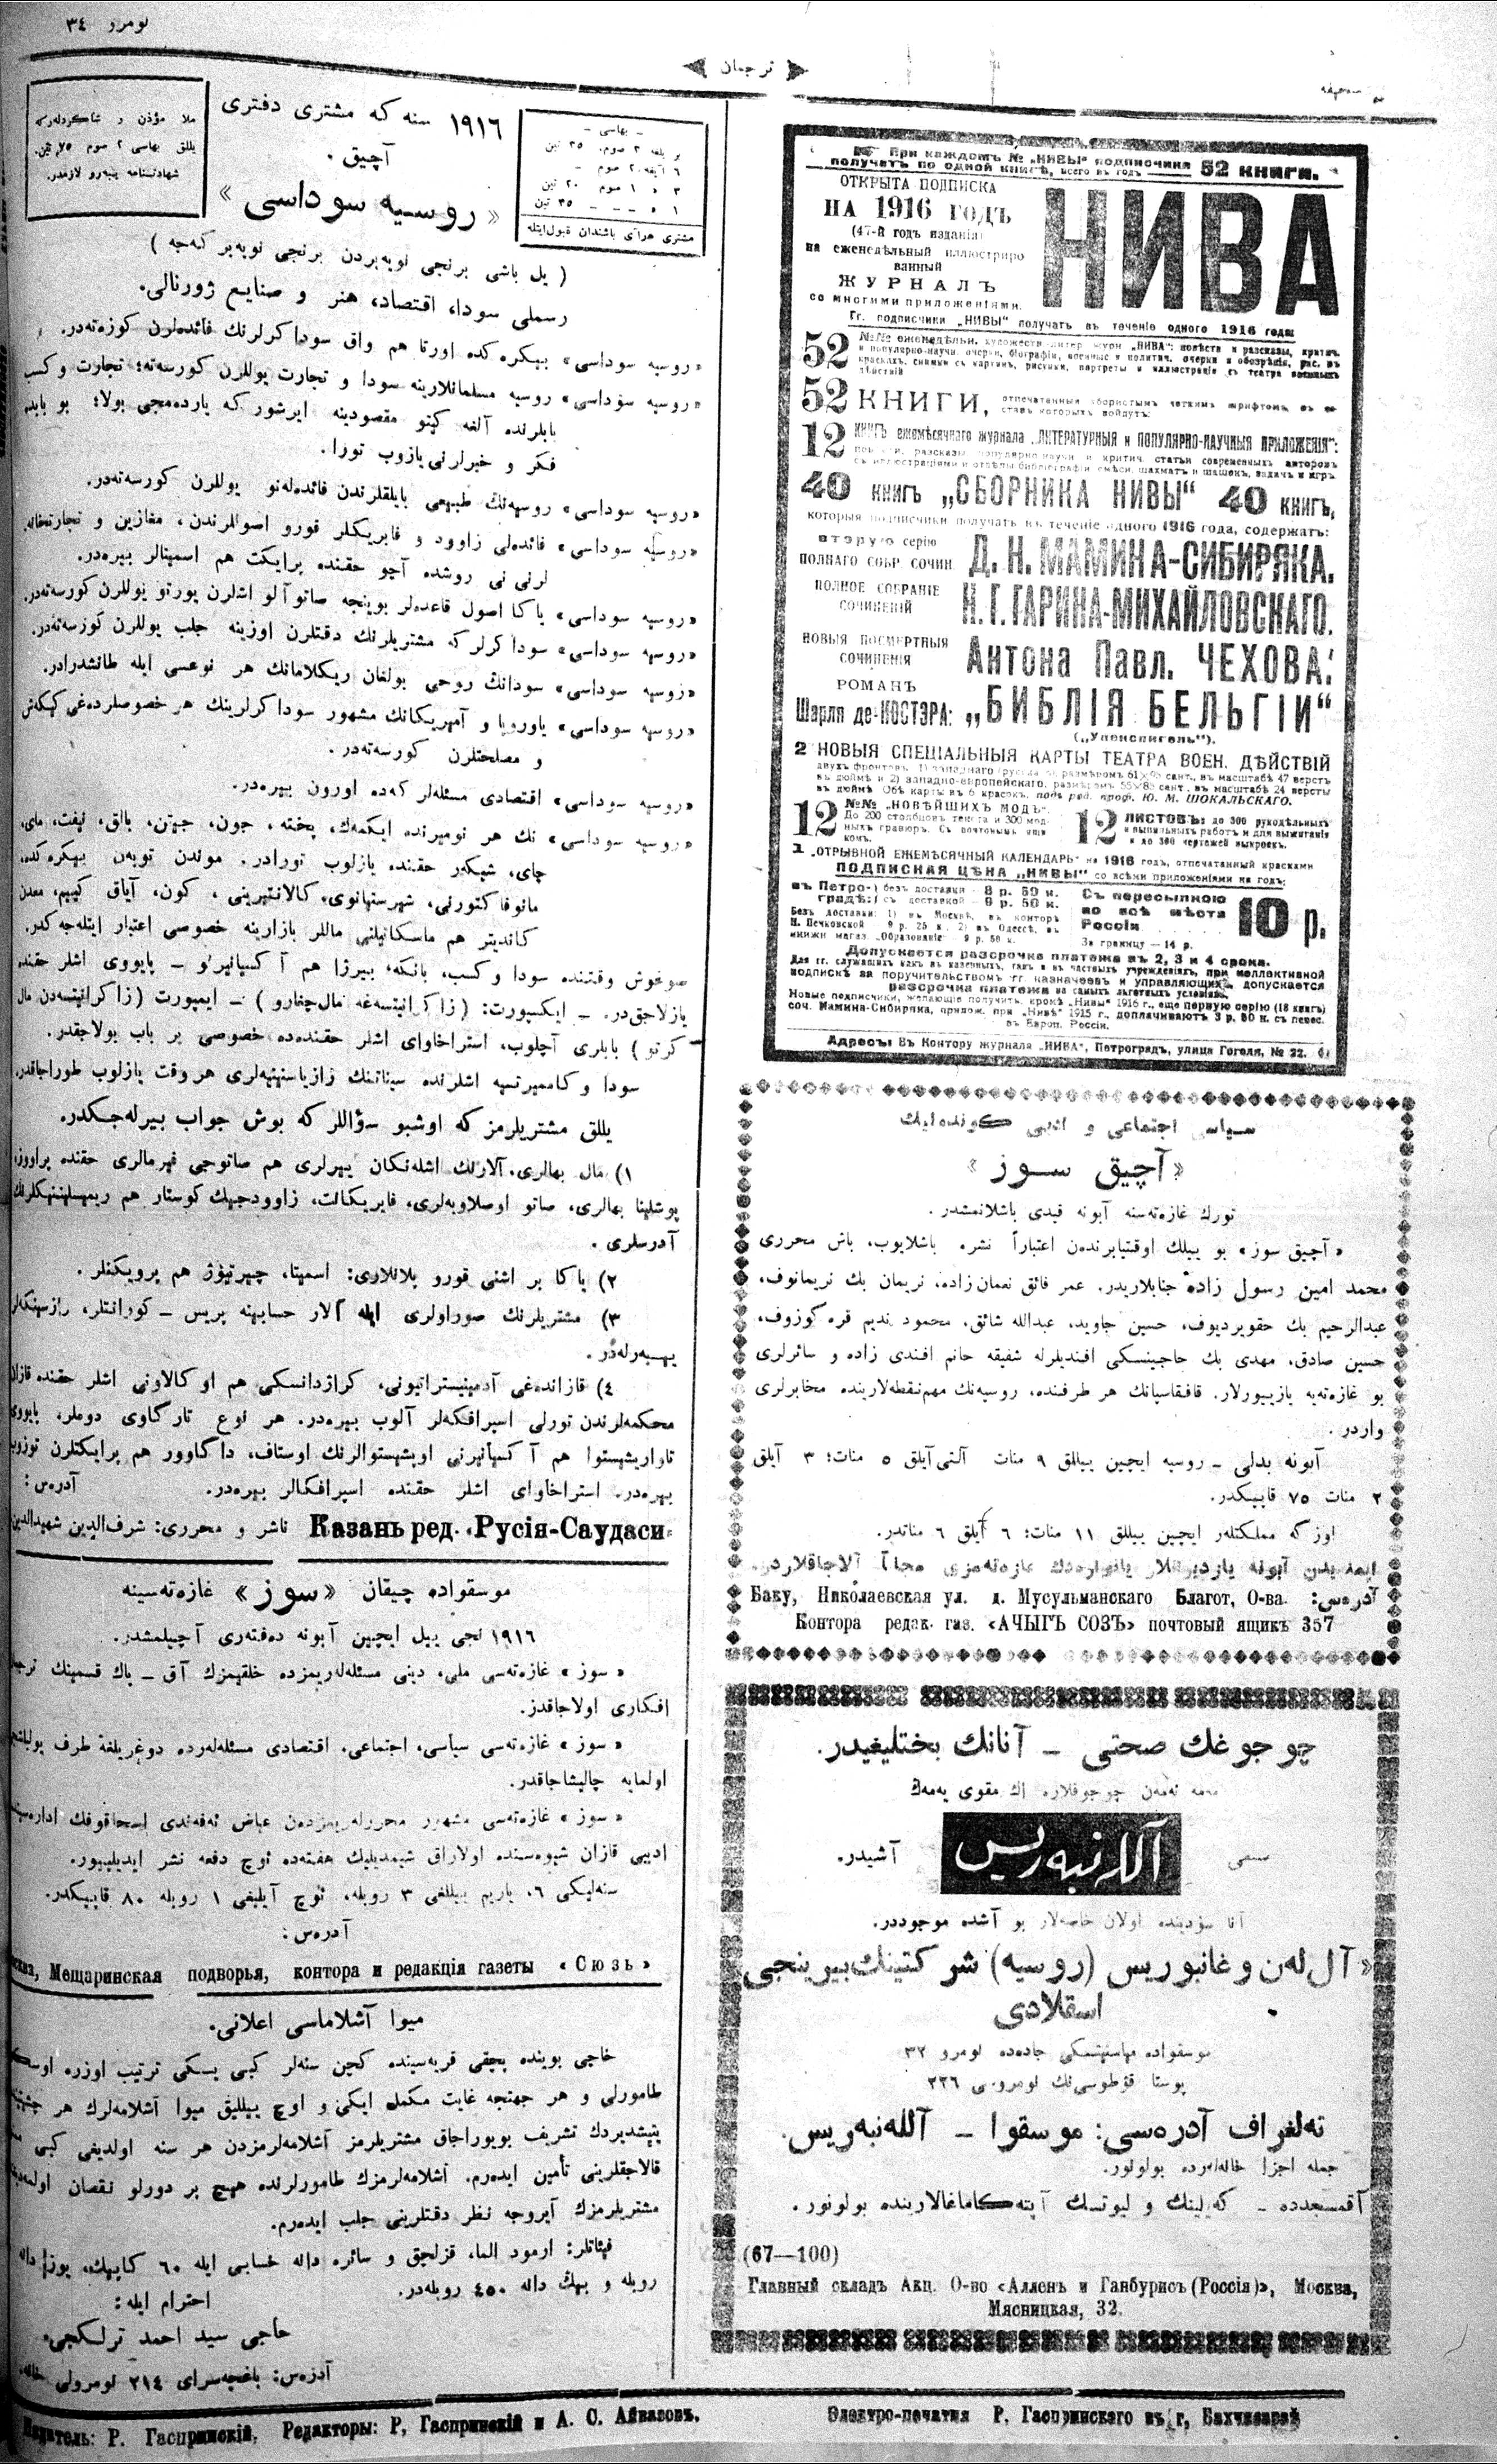 نومرو ٣٤
ترجمان
صحیفه
ملا مؤذن و شاكردلەركە
یللق بهاسی ٢ صوم ٧٥ تین.
شهادتنامه یبەرو لازمدر.
١٩١٦ سنه كه مشتری دفتری
آچیق .
« روسیه سوداسی »
– بهاسی –
بر یلغه ٣ صوم. ٣٥ تین
٦ آیغه ٢ صوم –
٣ » ١ صوم ٢٠ تین
١ » – – ٣٥ تین
مشتری هرآی باشندان قبول ایتله
( یل باشی برنجی نویەبردن برنجی نویەبر كەجه )
رسملی سودا، اقتصاد، هنر و صنایع ژورنالی.
«روسیه سوداسی» بیكرەكده اورتا هم واق سوداكرلرنك فائدەلرن كوزەتەدر.
«روسیه سوداسی» روسیه مسلمانلارینه سودا و تجارت یوللرن كورسەته؛ تجارت و كسب
بابلرنده آلغه كیتو مقصودینه ایرشور كه یاردەمچی بولا؛ بو بابده
فكر و خبرلرنی یازوب تورا.
«روسیه سوداسی» روسیەنك طبیعی بایلقلرندن فائدەلەنو یوللرن كورسەتەدر.
«روسیه سوداسی» فائدەلی زاوود و فابریكلر قورو اصوللرندن، مغازین و تجارتخانه
لرنی نی روشده آچو حقنده پرایكت هم اسمیتالر بیرەدر.
«روسیه سوداسی» یاكا اصول قاعدەلر بوینچه صاتو آلو اشلرن یورتو یوللرن كورسەتەدر.
«روسیه سوداسی» سوداكرلر كه مشتریلرنك دقتلرن اوزینه جلب یوللرن كورسەتەدر.
«روسیه سوداسی» سودانك روحی بولغان ریكلامانك هر نوعسی ایله طانشدرادر.
«روسیه سوداسی» یاوروپا و آمیریكانك مشهور سوداكرلرینك هر خصوصلردەغی كیكەش
و مصلحتلرن كورسەتەدر.
«روسیه سوداسی» اقتصادی مسئلەلر كەده اورون بیرەدر.
«روسیه سوداسی» نك هر نومیرنده ایكمەك، بخته، جون، جیتن، بالق، نیفت، مای،
چای، شیكەر حقنده یازلوب تورادر. موندن توبەن بیكرەكده،
مانوفاكتورنی، شهرستیانوی، كالانتیرینی، كون، آیاق كییم، معدن
كاندیتر هم ماسكاتیلنی ماللر بازارینه خصوصی اعتبار ایتلەجەكدر.
صوغوش وقتنده سودا وكسب، بانكه، بیرژا هم آكسیانیرنو – پایووی اشلر حقنده
یازلاجق در. – ایكسپورت: (زاكرانیتسەغه مال چغارو) – ایمپورت (زاكرانیتسەدن مال
كرتو) بابلری آچلوب، استراخاوای اشلر حقندەده خصوصی بر باب بولاجقدر.
سودا و كاممیرتسیه اشلرنده سیناتنك زازیاسنینیەلری هر وقت یازلوب طوراجاقدر.
یللق مشتریلرمز كه اوشبو سؤاللر كه بوش جواب بیرلەجكدر.
١) مال بهالری. آلارنك اشلەنكان یبرلری هم صاتوجی فیرمالری حقنده پراووز،
پوشلینا بهالری، صاتو اوصلاویەلری، فابریكانت، زاوودجیك كوستار هم ریمیسلیننیكلرنك
آدرسلری .
٢) یاكا بر اشنی قورو پلانلاوی: اسمیتا، چیرتیوژ هم پرویكتلر .
٣) مشتریلرنك صوراولری ایله آلار حسابینه پریس – كورانتلر، رازسینكەلر
یببەرلەدر .
٤) قازاندەغی آدمینیستراتیونی، كراژدانسكی هم اوكالاونی اشلر حقنده قازان
محكمەلرندن تورلی اسپرافكەلر آلوب بیرەدر. هر نوع تارگاوی دوملر، پایووی
تاواریشیستوا هم آكسیانیرنی اوبشیستوالرنك اوستاف، داگاوور هم پرایكتلرن توزوب
بیرەدر. استراخاوای اشلر حقنده اسپرافكالر بیرەدر. آدرەس:
Казань ред. «Русія-Саудаси» ناشر و محرری: شرف‌الدین شهیدالدین
موسقواده چیقان «سوز» غازەتەسینه
١٩١٦ نجی ییل ایچین آبونه دەفتەری آچیلمشدر.
«سوز» غازەتەسی ملی، دینی مسئلەلەریمزده خلقیمزك آق – پاك قسمینك ترجمان
افكاری اولاجاقدر.
«سوز» غازەتەسی سیاسی، اجتماعی، اقتصادی مسئلەلەرده دوغریلغه طرف
اولمایه چالیشاجاقدر.
«سوز» غازەتەسی مشهور محررلەریمزدەن عیاض ئەفەندی اسحاقوفك
ادبی قازان شیوەسنده اولاراق شیمدیلیك هفتەده ئوچ دفعه نشر ایدیلییور.
سنەلیكی ٦، یاریم ییللغی ٣ روبله، ئوچ آیلیغی ١ روبله ٨٠ قاپیكدر.
آدرەس:
Мещаринская подворья, контора и редакція газеты «Сюзь»
میوا آشلاماسی اعلانی.
خاجی بوینده بچقی قریەسینده كچن سنەلر كبی یسكی ترتیب اوزره
طامورلی و هر جهتجه غایت مكمل ایكی و اوچ ییللیق میوا آشلامەلرك هر
یتیشدیردك تشریف بویوراجاق مشتریلرمز آشلامەلرمزدن هر سنه اولدیغی كبی
قالاجقلرینی تأمین ایدەرم. آشلامەلرمزك طامورلرنده هیچ بر دورلو نقصان
مشتریلرمزك آیروجه نظر دقتلرینی جلب ایدەرم.
فیئاتلر: ارمود الما، قزلجق و سائره دانه حسابی ایله ٦٠ كاپیك، یوز دانه
روبله و بیڭ دانه ٤٥٠ روبلەدر.
احترام ایله:
حاجی سید احمد ترلكجی.
آدرەس: باغچەسرای ٢١٤ نومرولی خانه.
При каждомъ № „НИВЫ“ подписчики
получатъ по одной книгѣ, всего въ годъ — 52 книги.
ОТКРЫТА ПОДПИСКА
НА 1916 ГОДЪ
(47-й годъ изданія)
на еженедѣльный иллюстриро
ванный
ЖУРНАЛЪ
со многими приложеніями.
НИВА
Гг. подписчики „НИВЫ“ получатъ въ теченіе одного 1916 года:
52 №№ еженедѣльн. художеств.-литер. журн. „НИВА“: повѣсти и разсказы, критич.
и популярно-научн. очерки, біографіи, военные и политич. очерки и обозрѣнія, рис. въ
краскахъ, снимки съ картинъ, рисунки, портреты и иллюстраціи съ театра военныхъ
дѣйствій
52 КНИГИ, отпечатанныя убористымъ четкимъ шрифтомъ, въ со-
ставъ которыхъ войдутъ:
12 КНИГЪ ежемѣсячнаго журнала „ЛИТЕРАТУРНЫЯ и ПОПУЛЯРНО-НАУЧНЫЯ ПРИЛОЖЕНІЯ“:
повѣсти, разсказы, популярно-научн. и критич. статьи современныхъ авторовъ
съ иллюстраціями и отдѣлы библіографіи, смѣси, шахматъ и шашекъ, задачъ и игръ.
40 КНИГЪ „СБОРНИКА НИВЫ“ 40 КНИГЪ,
которыя подписчики получатъ въ теченіе одного 1916 года, содержатъ:
вторую серію
ПОЛНАГО СОБР. СОЧИН. Д. Н. МАМИНА-СИБИРЯКА.
ПОЛНОЕ СОБРАНІЕ
СОЧИНЕНІЙ Н. Г. ГАРИНА-МИХАЙЛОВСКАГО.
НОВЫЯ ПОСМЕРТНЫЯ
СОЧИНЕНІЯ Антона Павл. ЧЕХОВА.
РОМАНЪ
Шарля де-КОСТЭРА: „БИБЛІЯ БЕЛЬГІИ“
(„Уленспигель“).
2 НОВЫЯ СПЕЦІАЛЬНЫЯ КАРТЫ ТЕАТРА ВОЕН. ДѢЙСТВІЙ
двухъ фронтовъ: 1) западнаго (русскаго), размѣромъ 61×95 сант., въ масштабѣ 47 верстъ
въ дюймѣ и 2) западно-европейскаго, размѣромъ 55×85 сант., въ масштабѣ 24 версты
въ дюймѣ. Обѣ карты въ 6 красокъ, подъ ред. проф. Ю. М. ШОКАЛЬСКАГО.
12 №№ „НОВѢЙШИХЪ МОДЪ“.
До 200 столбцовъ текста и 300 мод-
ныхъ гравюръ. Съ почтовымъ ящи
комъ.
12 ЛИСТОВЪ: до 300 рукодѣльныхъ
и выпильныхъ работъ и для выжиганія
и до 300 чертежей выкроекъ.
1 „ОТРЫВНОЙ ЕЖЕМѢСЯЧНЫЙ КАЛЕНДАРЬ“ на 1916 годъ, отпечатанный красками
ПОДПИСНАЯ ЦѢНА „НИВЫ“ со всѣми приложеніями на годъ:
въ Петро-градѣ: безъ доставки – 8 р. 50 к.
съ доставкой – 9 р. 50 к.
Безъ доставки: 1) въ Москвѣ, въ конторѣ
Н. Печковской 9 р. 25 к. 2) въ Одессѣ, въ
книжн магаз. „Образованіе“ 9 р. 50 к.
Съ пересылкою
во всѣ мѣста
Россіи 10 р.
За границу — 14 р.
Допускается разсрочка платежа въ 2, 3 и 4 срока.
Для гг. служащихъ какъ въ казенныхъ, такъ и въ частныхъ учрежденіяхъ, при коллективной
подпискѣ за поручительствомъ гг. казначеевъ и управляющихъ, допускается
разсрочка платежа на самыхъ льготныхъ условіяхъ.
Новые подписчики, желающіе получить, кромѣ „Нивы“ 1916 г., еще первую серію (18 книгъ)
соч. Мамина-Сибиряка, прилож. при „Нивѣ“ 1915 г., доплачиваютъ 3 р. 50 к. съ перес.
въ Европ. Россіи.
Адресъ: Въ Контору журнала „НИВА“, Петроградъ, улица Гоголя, № 22.
سیاسی اجتماعی و ادبی كوندەلیك
«آچیق سوز»
تورك غازەتەسنه آبونه قیدی باشلانمشدر.
«آچیق سوز» بو ییلك اوقتیابرندەن اعتباراً نشره باشلایوب، باش محرری
محمد امین رسول زاده جنابلاریدر. عمر فائق نعمان زاده، نریمان بك نریمانوف،
عبدالرحیم بك حقویردیوف، حسین جاوید، عبدالله شائق، محمود ندیم قره كوزوف،
حسین صادق، مهدی بك حاجینسكی افندیلرله شفیقه خانم افندی زاده و سائرلری
بو غازەتەیه یازییورلار. قافقاسیانك هر طرفنده، روسیەنك مهم نقطەلارینده مخابرلری
واردر.
آبونه بدلی – روسیه ایچین ییللق ٩ منات آلتی آیلق ٥ منات؛ ٣ آیلق
٢ منات ٧٥ قاپیكدر.
اوزكه مملكتلەر ایچین ییللق ١١ منات؛ ٦ آیلق ٦ مناتدر.
ایمدیدن آبونه یازدیرانلار یانوارەدك غازەتەمزی مجاناً آلاجاقلاردر.
آدرەس: Баку, Николаевская ул. д. Мусульманскаго Благот, О-ва.
Контора редак. газ. «АЧЫГЪ СОЗЪ» почтовый ящикъ 357
چوجوغك صحتی – آنانك بختلیغیدر.
مەمه ئەمەن چوجوقلاره اك مقوی یەمەك
آللەنبەریس
آشیدر.
آنا سۆدینده اولان خاصەلار بو آشده موجوددر.
«آل لەن و غانبوریس (روسیه) شركتینك بیرینجی
اسقلادی
موسقواده میاسنیتسكی جادەده نومرو ٣٢
پوستا قۆطوسی‌نك نومروسی ٢٢٦
تەلغراف آدرەسی: موسقوا – آللەنبەریس.
جمله اجزا خانەلەرده بولونور.
آقمسجدده – كەیلینك و لیوتسك آپتەكاماغالارینده بولونور.
(67—100)
Главный складъ Акц. О-во «Алленъ и Ганбурисъ (Россія)», Москва,
Мясницкая, 32.
Издатель: Р. Гаспринскій, Редакторы: Р, Гаспринскій и А. С. Айвазовъ.
Электро-печатня Р. Гаспринскаго въ г, Бахчисараѣ